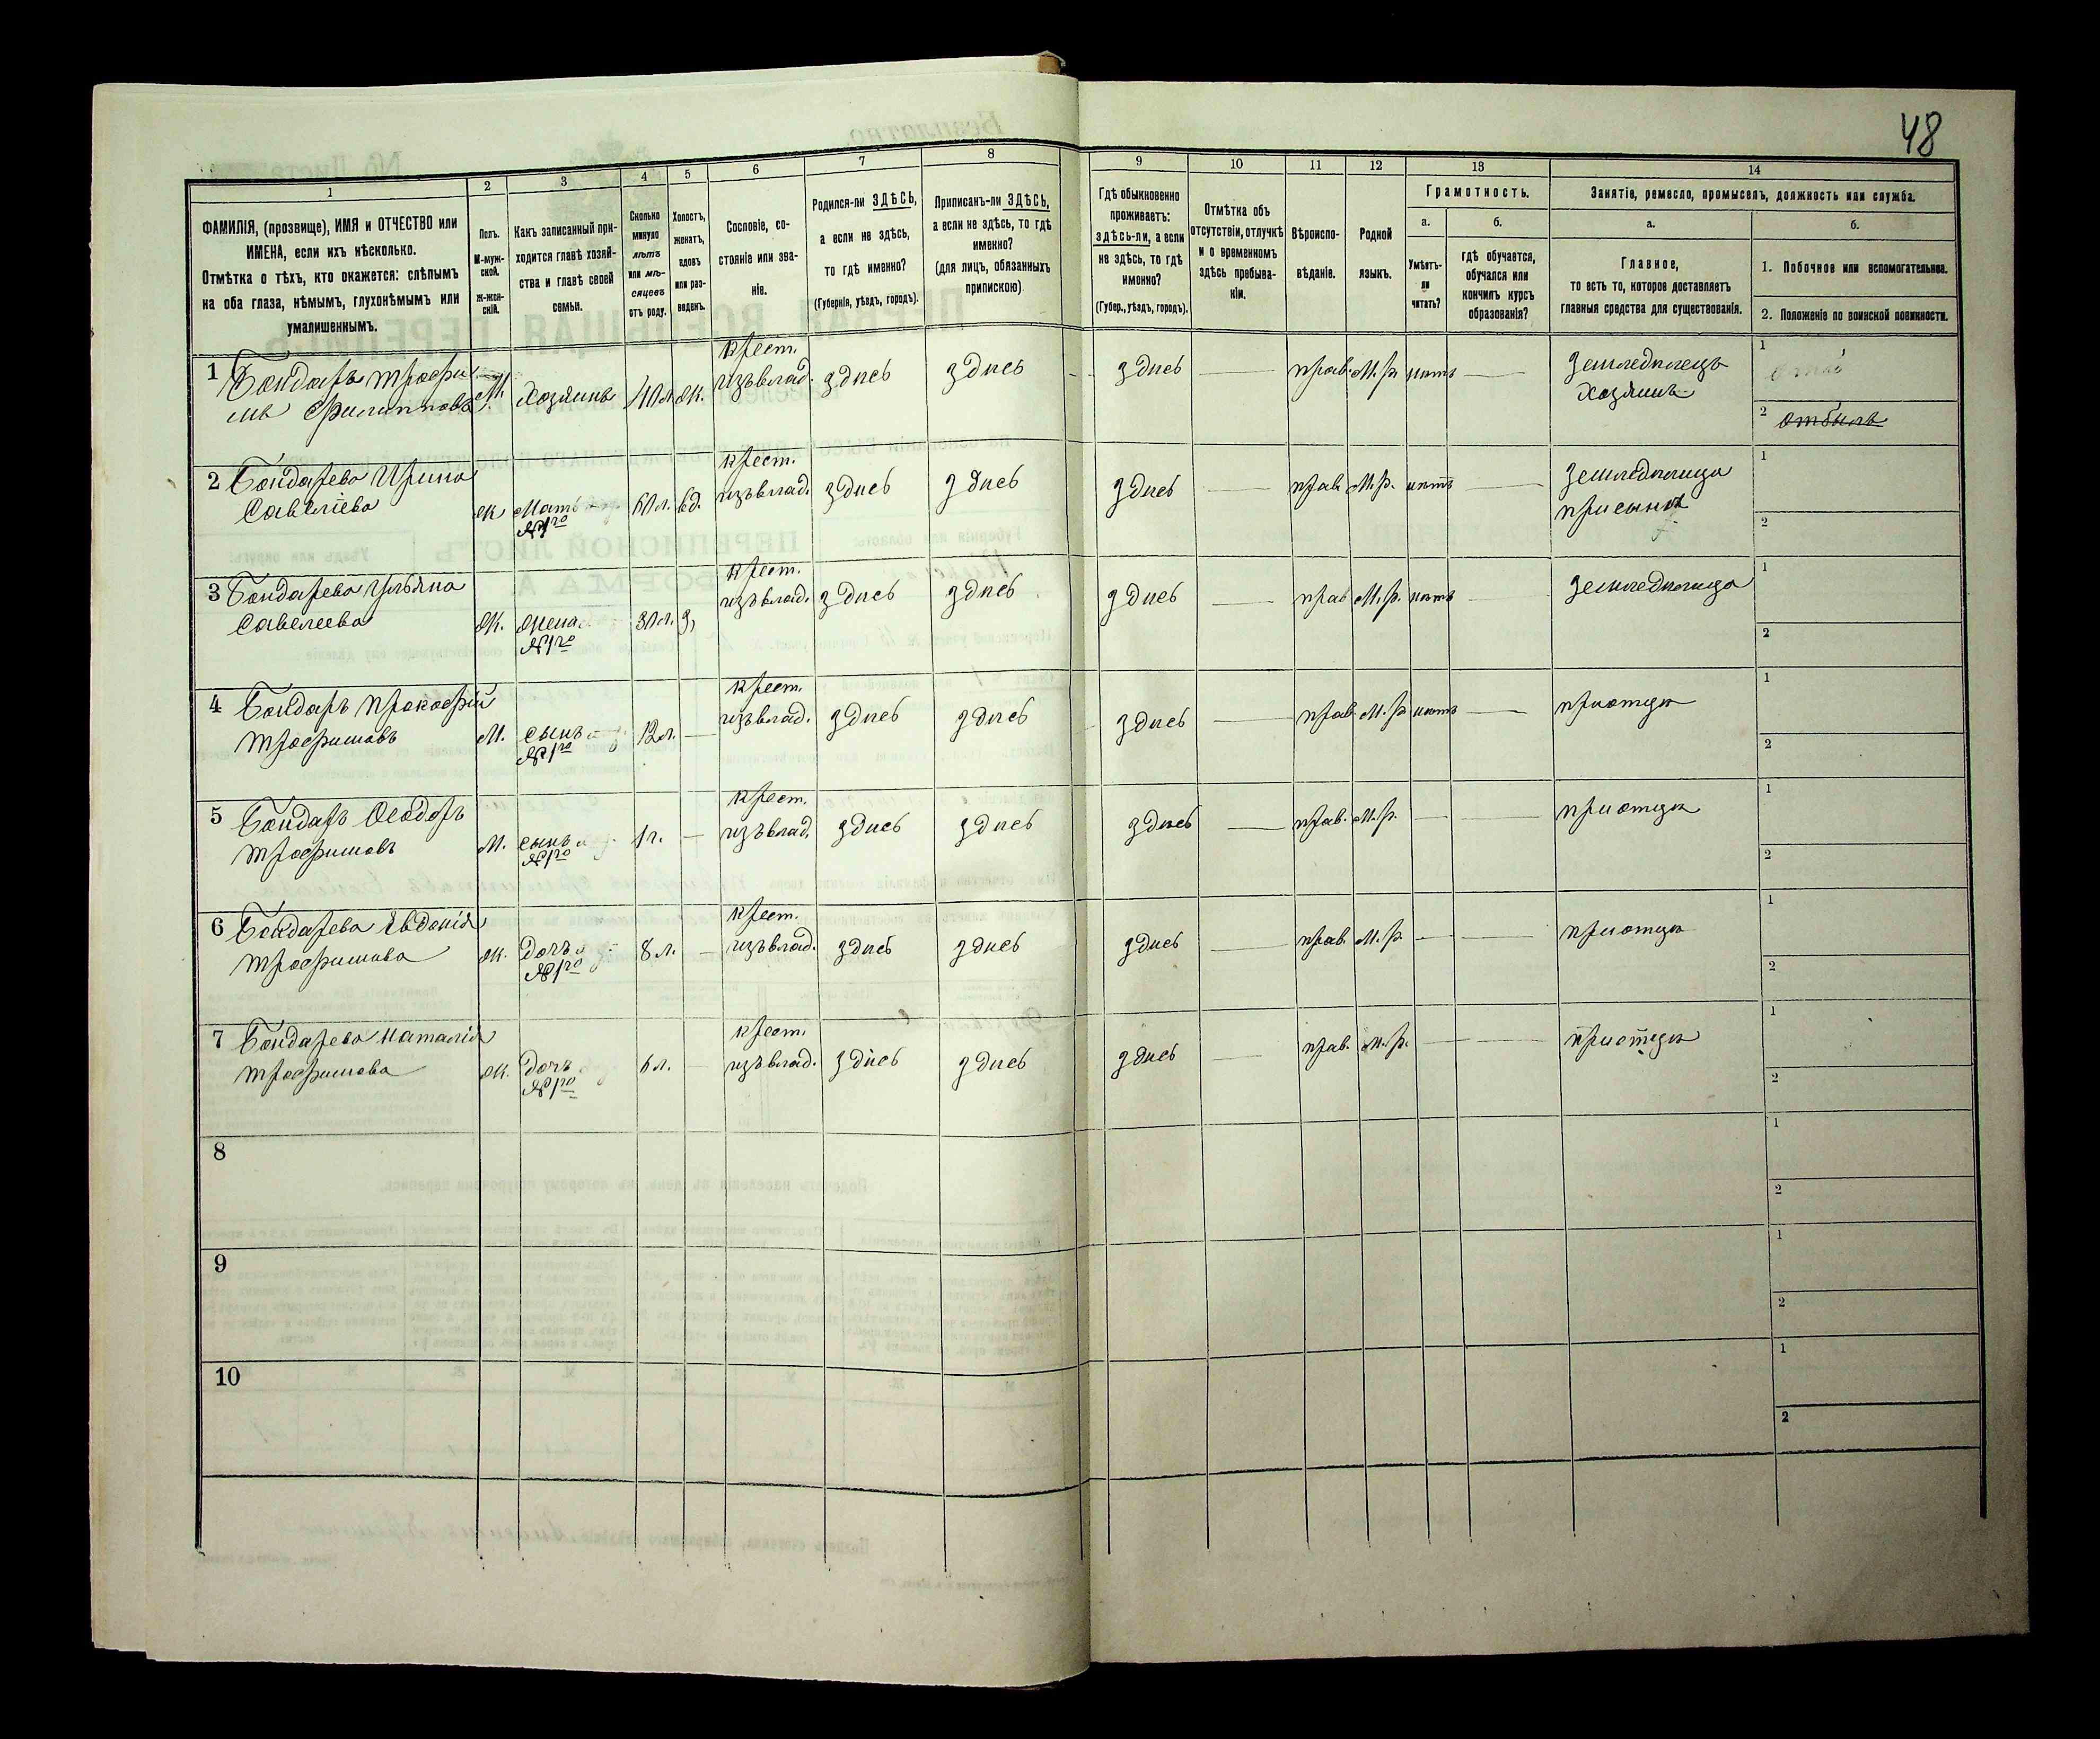 48
1
2
3
4
5
6
7
8
9
10
11
12
13
14
ФАМИЛІЯ, (прозвище), ИМЯ и ОТЧЕСТВО или
ИМЕНА, если ихъ нѣсколько.
Отмѣтка о тѣхъ, кто окажется: слѣпымъ
на оба глаза, нѣмымъ, глухонѣмымъ или
умалишеннымъ.
Полъ.
М-муж-
ской.
Ж-жен-
скій.
Какъ записанный при-
ходится главѣ хозяй-
ства и главѣ своей
семьи.
Сколько
минуло
лѣтъ
или мѣ-
сяцевъ
отъ роду.
Холостъ,
женатъ,
вдовъ
или раз-
веденъ.
Сословіе, со-
стояніе или зва-
ніе.
Родился-ли ЗДѢСЬ,
а если не здѣсь,
то гдѣ именно?
(Губернія, уѣздъ, городъ).
Приписанъ-ли ЗДѢСЬ,
а если не здѣсь, то гдѣ
именно?
(для лицъ, обязанныхъ
припискою)
Гдѣ обыкновенно
проживаетъ:
здѣсь-ли, а если
не здѣсь, то гдѣ
именно?
(Губер., уѣздъ, городъ).
Отмѣтка объ
отсутствіи, отлучкѣ
и о временномъ
здѣсь пребыва-
ніи.
Вѣроиспо-
вѣданіе.
Родной
языкъ.
Грамотность.
а.
б.
Умѣетъ-
ли
читать?
гдѣ обучается,
обучался или
кончилъ курсъ
образованія?
Занятіе, ремесло, промыселъ, должность или служба.
а.
б.
Главное,
то есть то, которое доставляетъ
главныя средства для существованія.
1. Побочное или вспомогательное.
2. Положеніе по воинской повинности.
1 Бондарь Трофи
мъ Филипповъ М. Хозяинъ 40 л. ж. крест.
изъ влад. здись здись здись — прав. М.р. нитъ — Земледилецъ
Хозяинъ
1
2 отбылъ
2 Бондарева Ирина
Савеліева ж Мать
№ 1го 60 л. вд. крест.
изъ влад. здись здись здись — прав. М.р. нитъ — Земледилица
при сыни
1
2
3 Бондарева Ульяна
Савелеева ж. жена
№ 1го 30 л. з, крест.
изъ влад. здись здись здись — прав М.р. нитъ — Земледилица
1
2
4 Бондарь Прокофій
Трофимовъ М. сынъ
№ 1го 12 л. — крест.
изъ влад. здись здись здись — прав М.р. нитъ — при отци
1
2
5 Бондарь Феодоръ
Трофимовъ М. сынъ
№ 1го 1 г. — крест.
изъ влад. здись здись здись — прав. М.р. — — при отци
1
2
6 Бондарева Евдокія
Трофимова ж. Дочь
№ 1го 8 л. — крест.
изъ влад. здись здись здись — прав. М.р. — — при отци
1
2
7 Бондарева Наталія
Трофимова ж. Дочь
№ 1го 6 л. — крест.
изъ влад. здись здись здись — прав. М.р. — — при отци
1
2
8
1
2
9
1
2
10
1
2